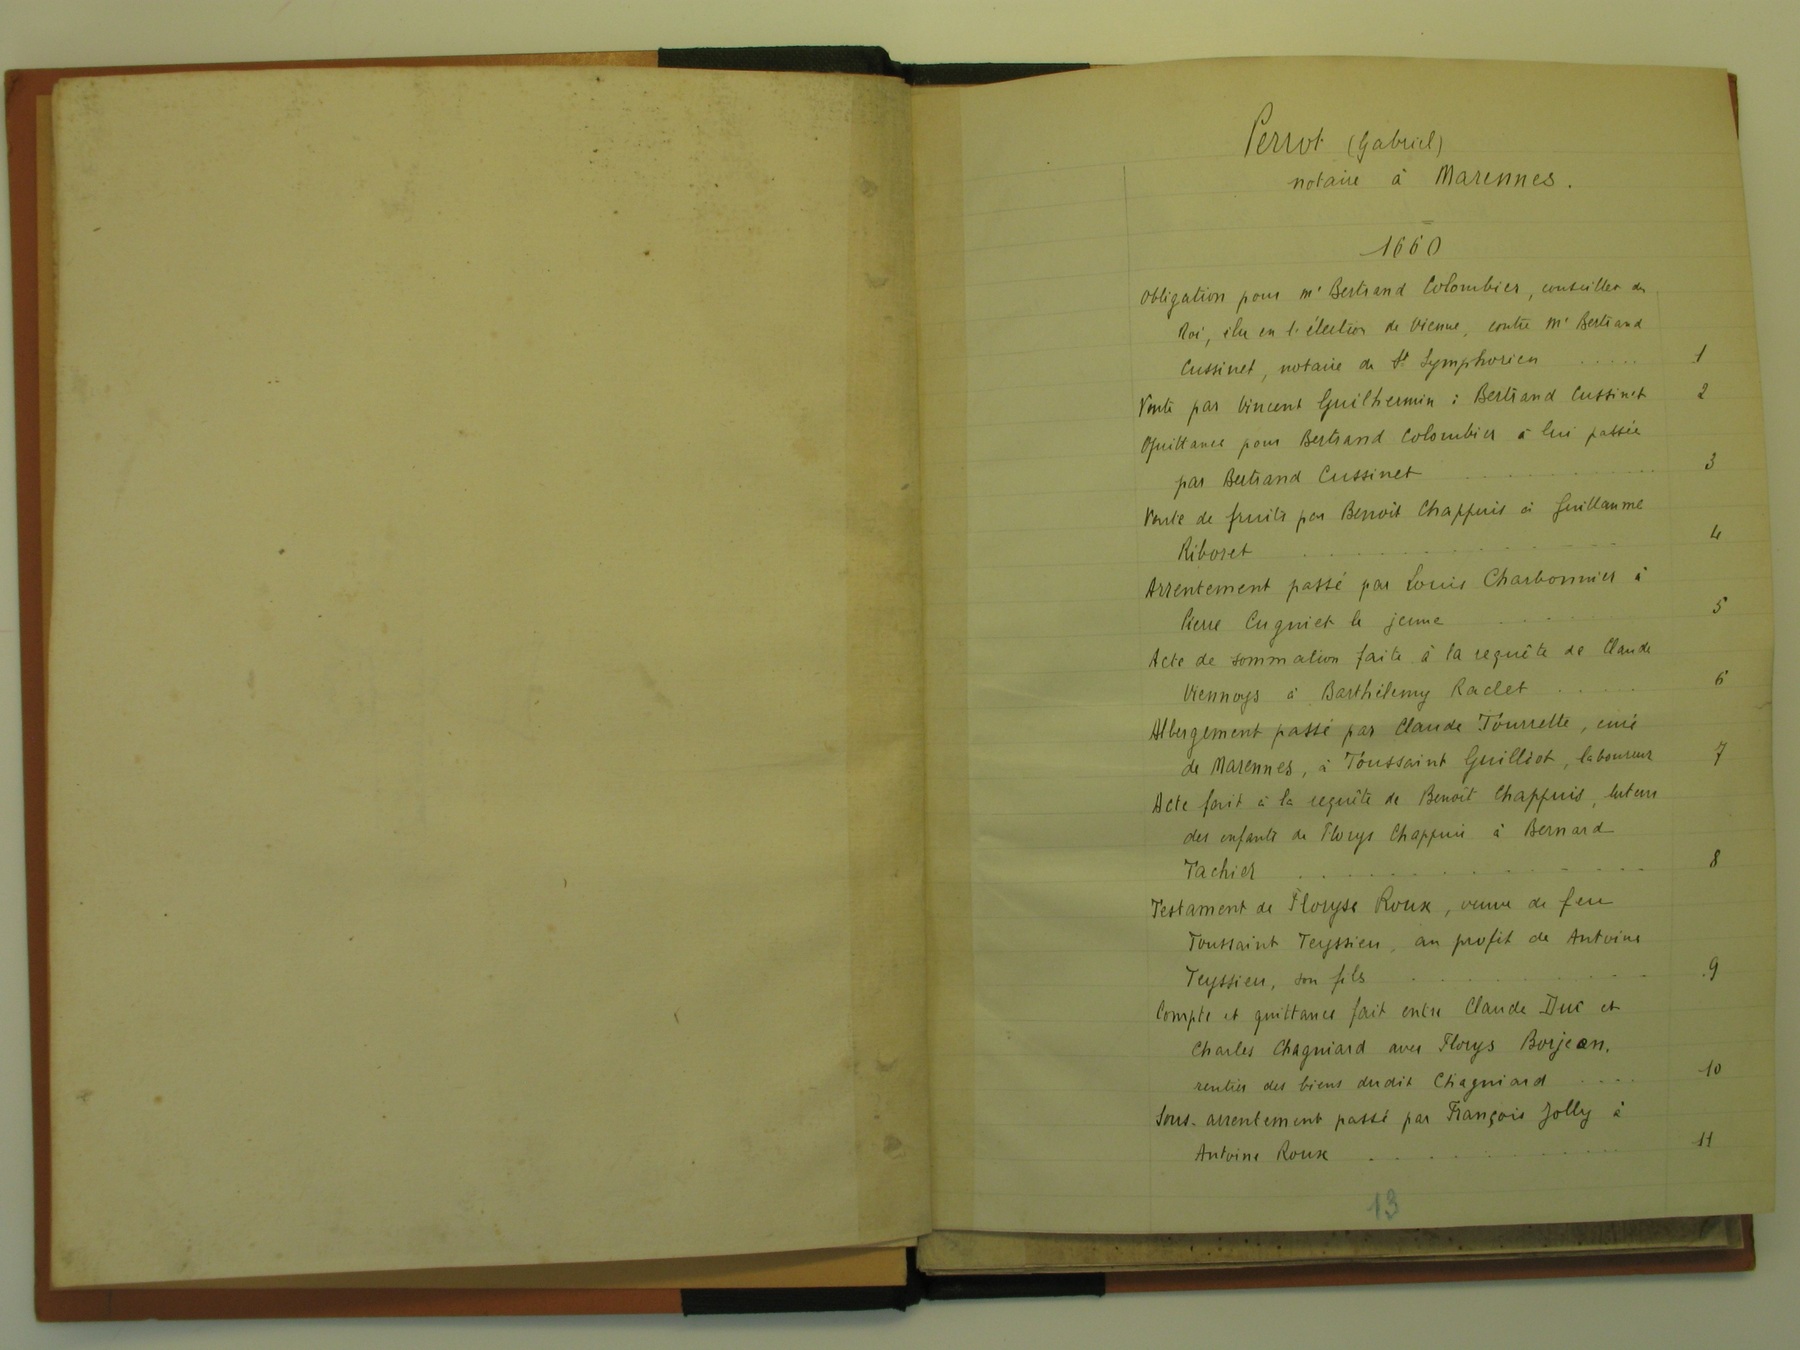 Perrot (Gabriel)
notaire à Marennes.
1660
Obligation pour Mr Bertrand Colombier, conseiller du
Roi, élu en l'élection de Vienne, contre Mr Bertrand
Cussinet, notaire de St Symphorien ..... 1
Vente par Vincent Guilhermin à Bertrand Cussinet 2
Quittance pour Bertrand Colombier à lui passée
par Bertrand Cussinet ........... 3
Vente de fruits par Benoît Chappuis à Guillaume
Riboret ............. 4
Arrentement passé par Louis Charbonnier à
Pierre Cugniet le jeune ....... 5
Acte de sommation faite à la requête de Claude
Viennoys à Barthélemy Raclet ..... 6
Albergement passé par Claude Tourrette, curé
de Marennes, à Toussaint Guilliot, laboureur 7
Acte fait à la requête de Benoît Chappuis, tuteur
des enfants de Florys Chappuis à Bernard
Tachier ............... 8
Testament de Floryse Roux, veuve de feu
Toussaint Teyssieu, au profit de Antoine
Teyssieu, son fils ........... 9
Compte et quittance fait entre Claude Duc et
Charles Chagniard avec Florys Borjean,
rentier des biens dudit Chagniard .... 10
Sous-arrentement passé par François Jolly à
Antoine Roux ........... 11
13